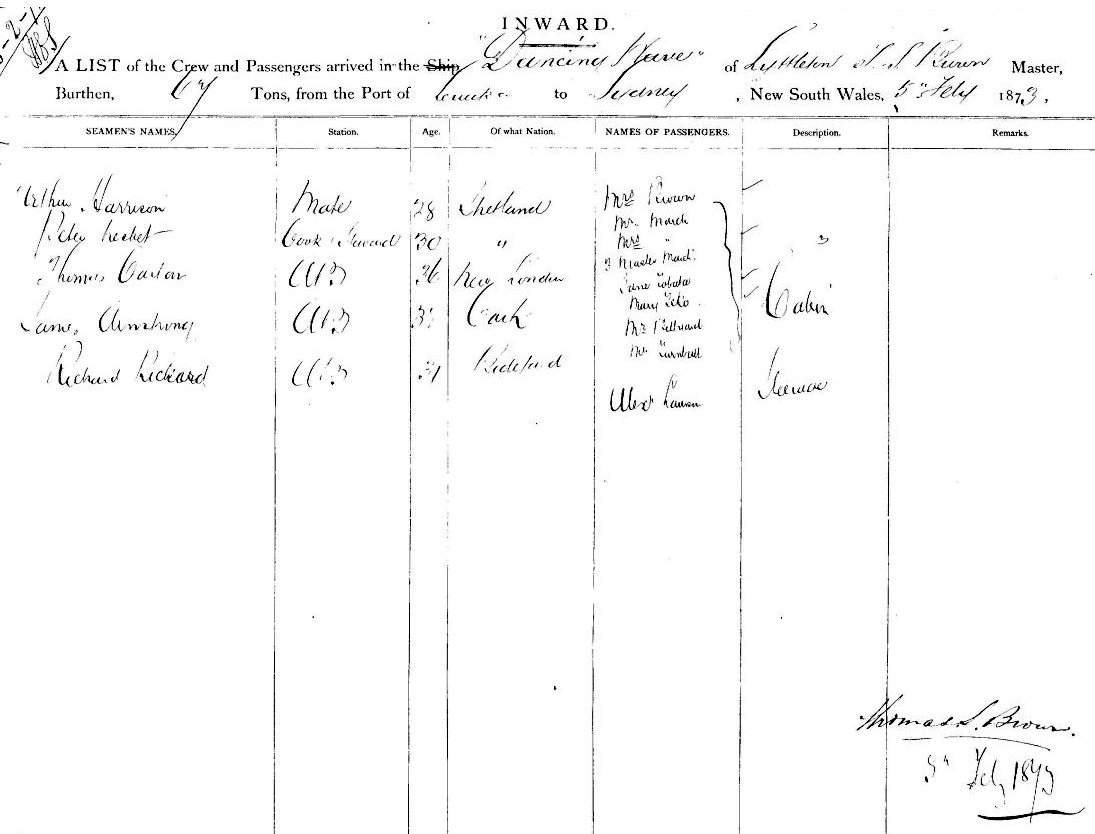 INWARD.
A LIST of the Crew and Passengers arrived in the Ship "Dancing Wave" of T. S. Brown Master,
Burthen, 67 Tons, from the Port of to Sydney, New South Wales, 5th Feby 1873.
SEAMEN'S NAMES. Station. Age. Of what Nation. NAMES OF PASSENGERS. Description. Remarks.
Arthur Harrison Mate 28 Shetland Mrs Brown
Mr. March
Peter Cook & Steward 30 " Mrs "
3 Master March
Thomas AB 36 New London Jane
Mary Cabin
James Armstrong AB Cork Mr
Mr Turnbull
Richard Rickard AB 31 Bideford
Alexr Steerage
Thomas S. Brown.
5th Feby 1873